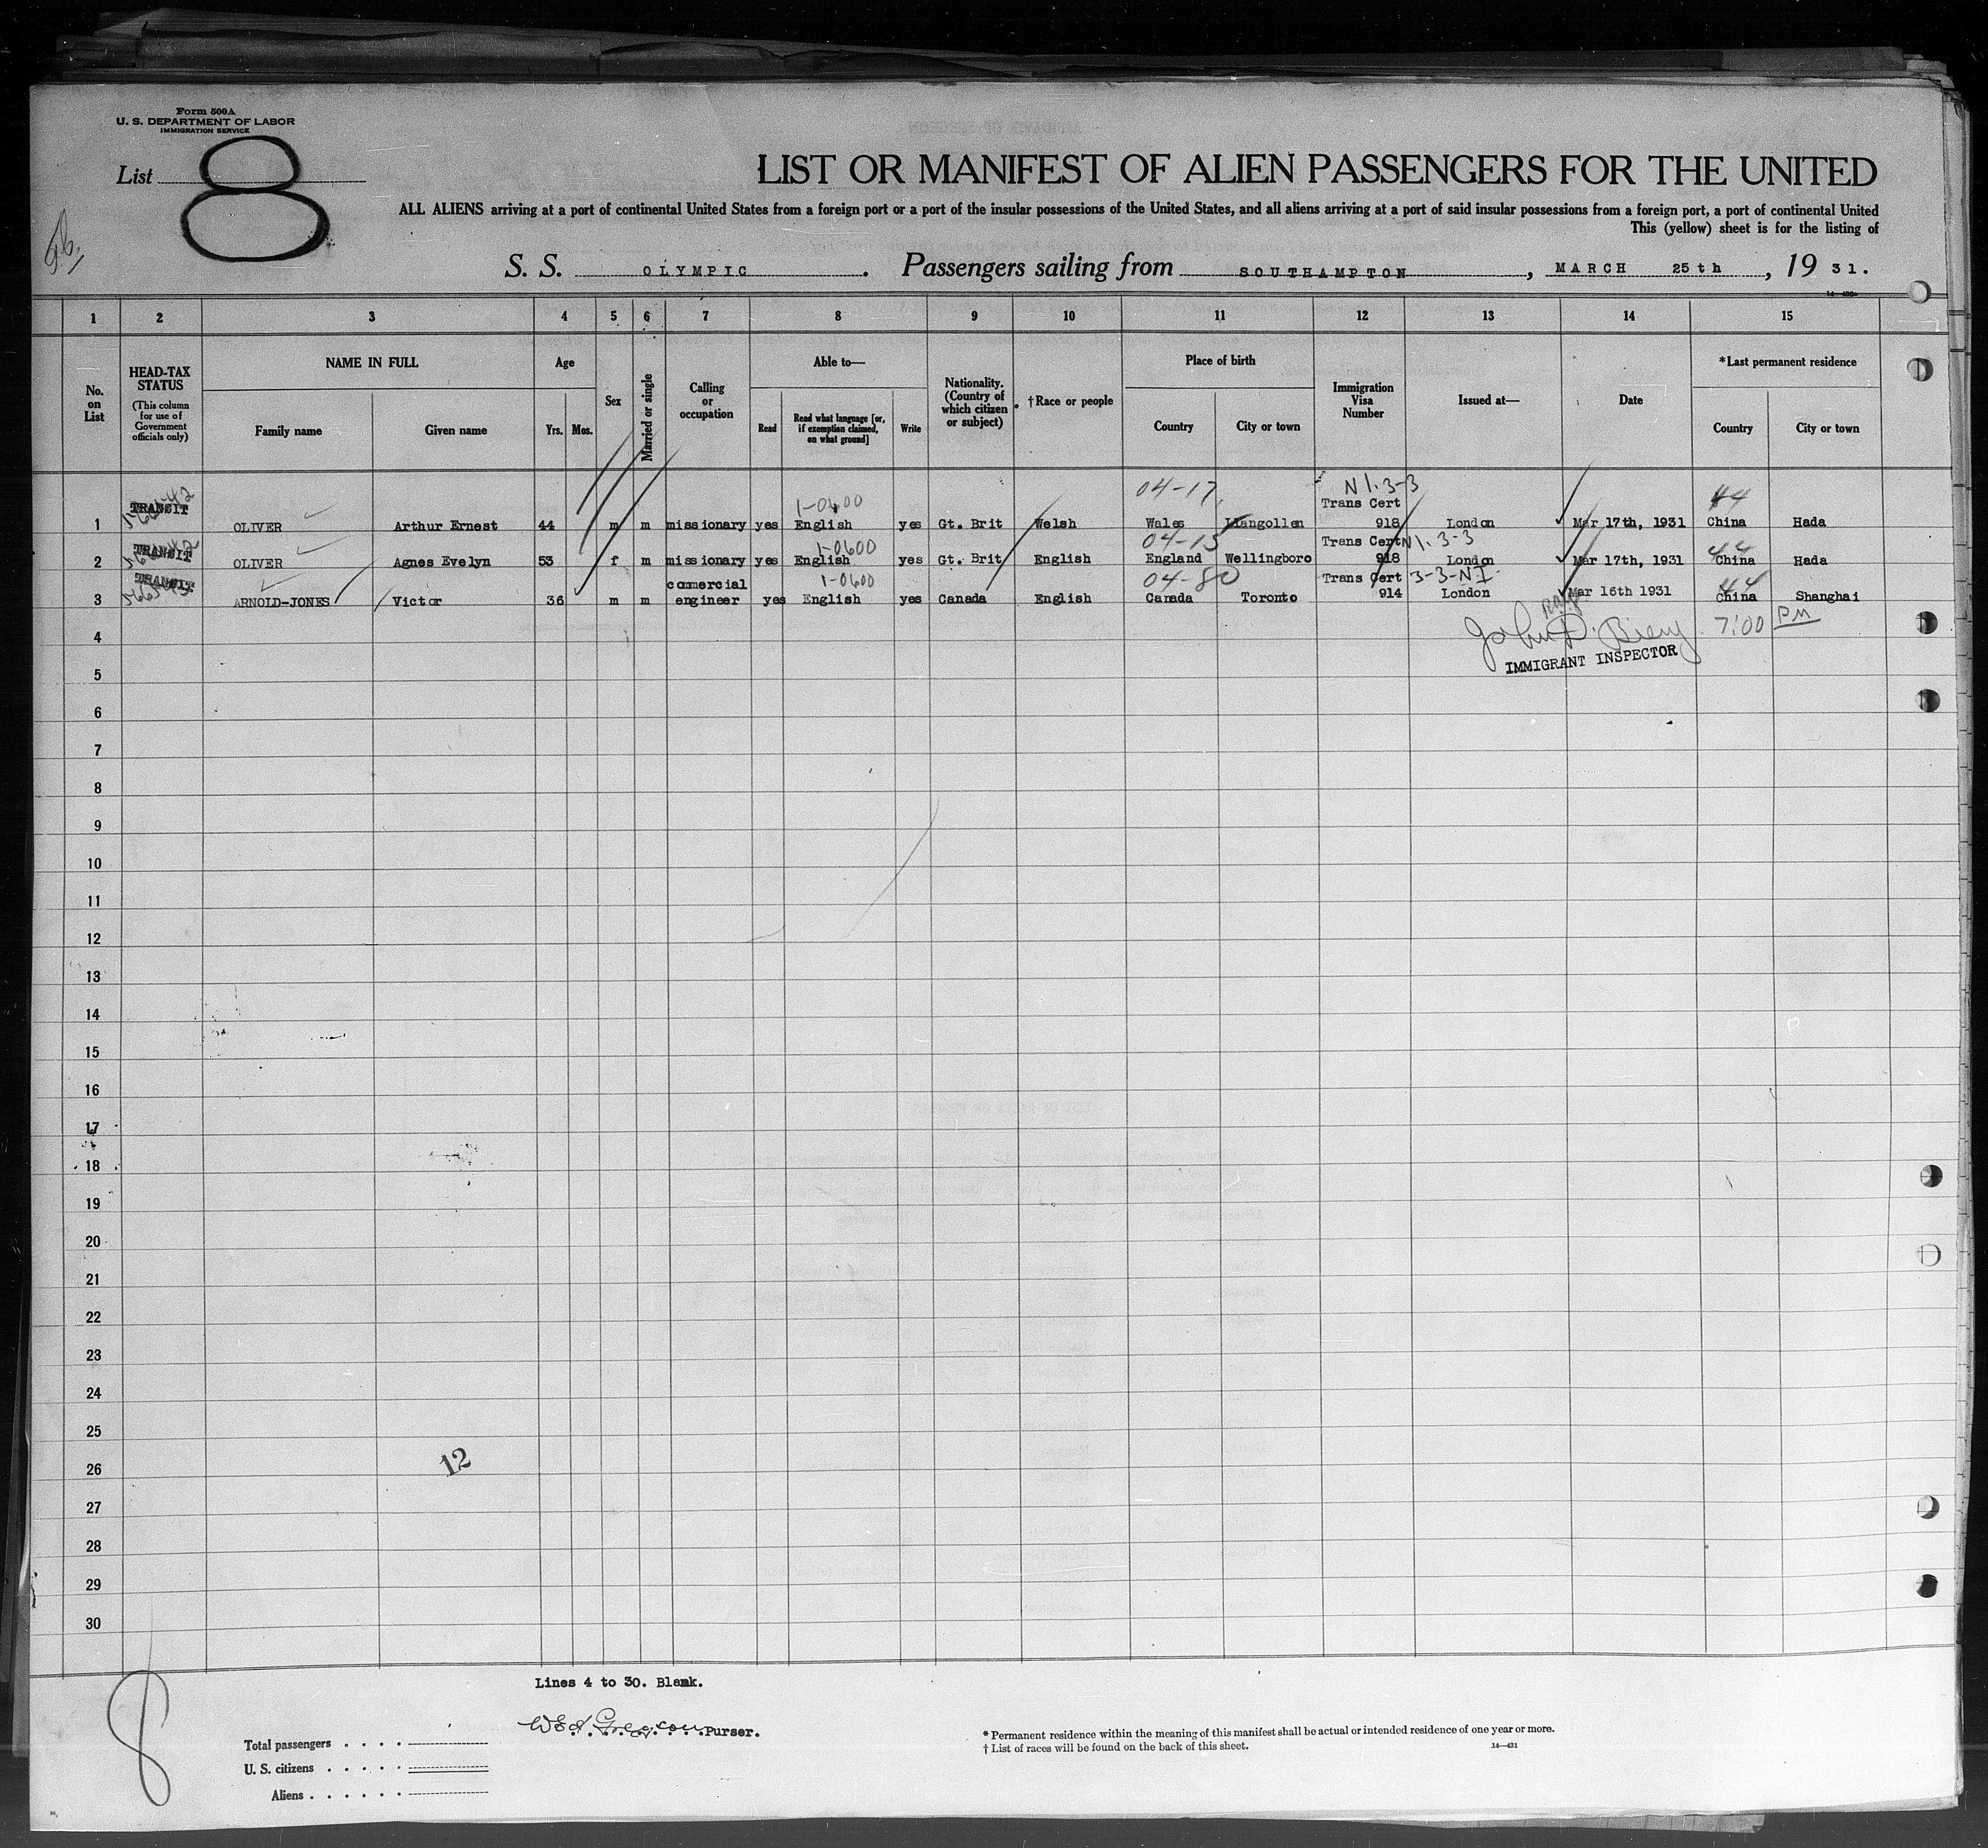 Form 500A
U. S. DEPARTMENT OF LABOR
IMMIGRATION SERVICE
List 8
LIST OR MANIFEST OF ALIEN PASSENGERS FOR THE UNITED
ALL ALIENS arriving at a port of continental United States from a foreign port or a port of the insular possessions of the United States, and all aliens arriving at a port of said insular possessions from a foreign port, a port of continental United
This (yellow) sheet is for the listing of
S. S. OLYMPIC . Passengers sailing from SOUTHAMPTON , MARCH 25th , 19 31.
1 2 3 4 5 6 7 8 9 10 11 12 13 14 15
No. on List
HEAD-TAX STATUS
(This column for use of Government officials only)
NAME IN FULL
Family name Given name
Age
Yrs. Mos.
Sex
Married or single
Calling or occupation
Able to—
Read
Read what language [or, if exemption claimed, on what ground]
Write
Nationality. (Country of which citizen or subject)
† Race or people
Place of birth
Country City or town
Immigration Visa Number
Issued at—
Date
*Last permanent residence
Country City or town
04-17 N1.3-3
TRANSIT 1-0600 Trans Cert 44
1 OLIVER Arthur Ernest 44 m m missionary yes English yes Gt. Brit Welsh Wales Llangollen 918 London Mar 17th, 1931 China Hada
TRANSIT 1-0600 04-15 Trans Cert N1.3-3 44
2 OLIVER Agnes Evelyn 53 f m missionary yes English yes Gt. Brit English England Wellingboro 918 London Mar 17th, 1931 China Hada
TRANSIT commercial 1-0600 04-80 Trans Cert 3-3-NI 44
3 ARNOLD-JONES Victor 36 m m engineer yes English yes Canada English Canada Toronto 914 London Mar 16th 1931 China Shanghai
4 John D. Biery 7:00 PM
IMMIGRANT INSPECTOR
5
6
7
8
9
10
11
12
13
14
15
16
17
18
19
20
21
22
23
24
25
26 12
27
28
29
30
Lines 4 to 30. Blank.
Purser.
8
Total passengers
U. S. citizens
Aliens
* Permanent residence within the meaning of this manifest shall be actual or intended residence of one year or more.
† List of races will be found on the back of this sheet.
14—431